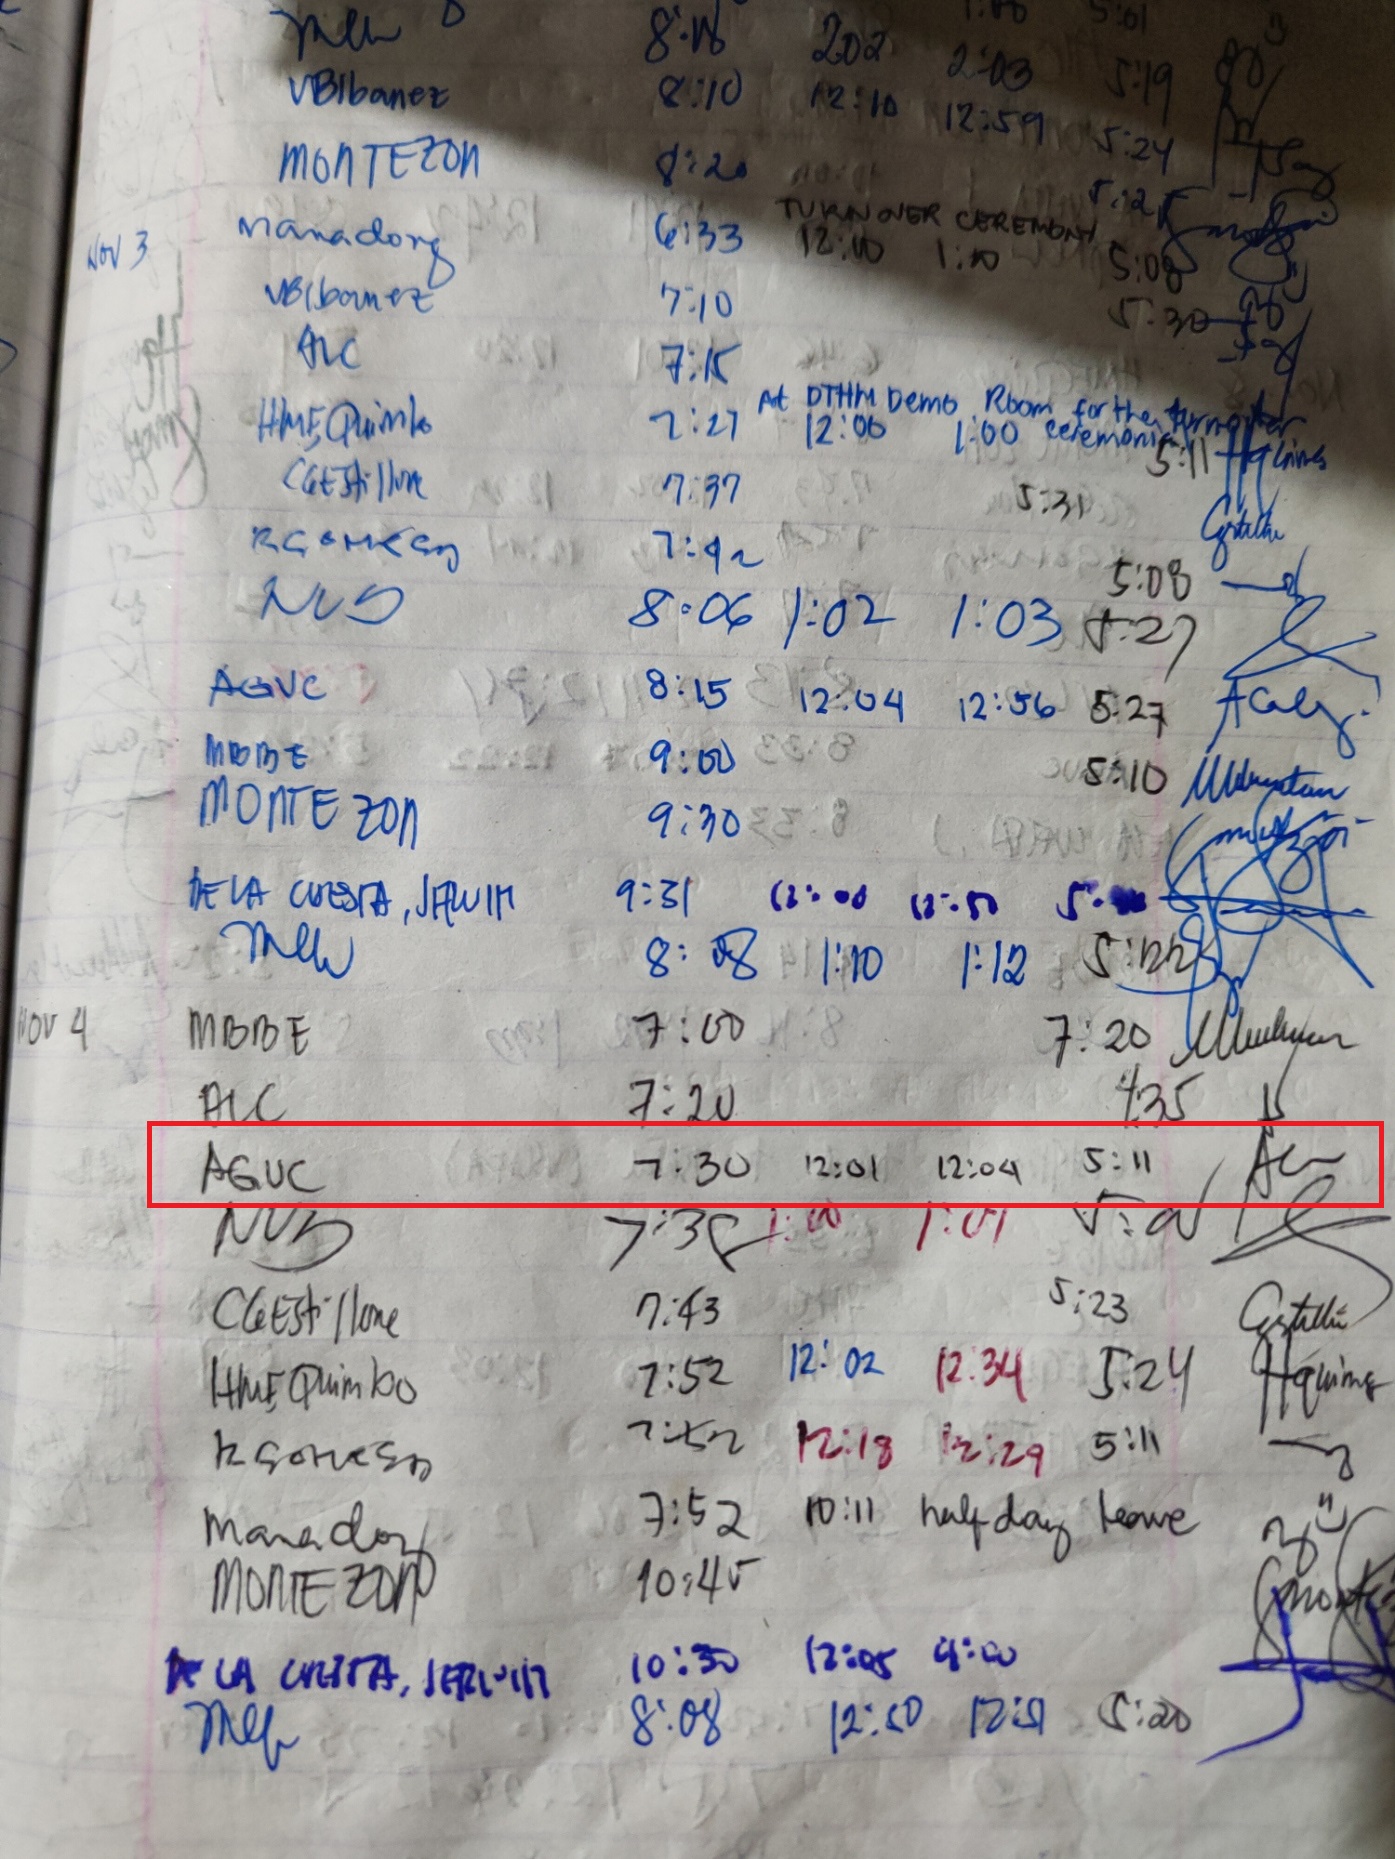 1:00 5:01
8:18 202 2:03 5:19
VBIbanez 8:10 12:10 12:59 5:24
MONTEZON 8:20 5:25
TURNOVER CEREMONY
NOV 3 Manadong 6:33 12:10 1:10 5:08
VBIbanez 7:10 5:30
ALC 7:15
At DTHM Demo Room for the turnover
HMEQuimbo 7:27 12:00 1:00 ceremonies 5:11
CGEstillore 7:37 5:31
7:42 5:08
NVS 8:06 1:02 1:03 5:27
AGVC 8:15 12:04 12:56 5:27
MBBE 9:00 5:10
MONTEZON 9:30
DE LA CUESTA, JERWIN 9:31 12:00 12:50
8:08 1:10 1:12 5:22
NOV 4 MBBE 7:00 7:20
ALC 7:20 4:35
AGVC 7:30 12:01 12:04 5:11
NVS 1:00 1:01
CGEstillore 7:43 5:23
HMEQuimbo 7:52 12:02 12:34 5:24 Hquimbo
7:52 12:18 12:29 5:11
Manadong 7:52 10:11 half day leave
MONTEZON 10:45
DE LA CUESTA, JERWIN 10:30 12:05 4:00
8:08 12:50 12:51 5:20